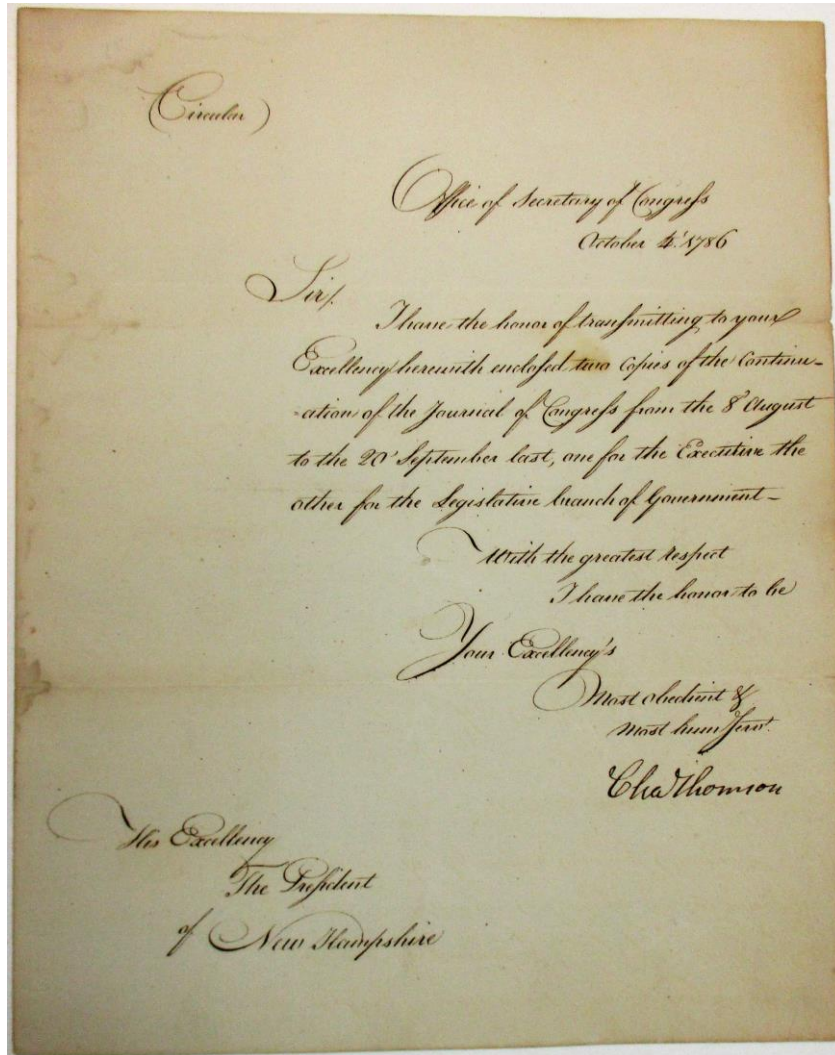 (Circular)
Office of Secretary of Congress
October 4.' 1786
Sir/.
I have the honor of transmitting to your
Excellency herewith enclosed two Copies of the Continu-
-ation of the Journal of Congress from the 8' August
to the 20' September last, one for the Executive the
other for the Legislative branch of Government-
With the greatest respect
I have the honor to be
Your Excellency's
Most obedient &
most hum Servt.
Cha Thomson
His Excellency
The President
of New Hampshire